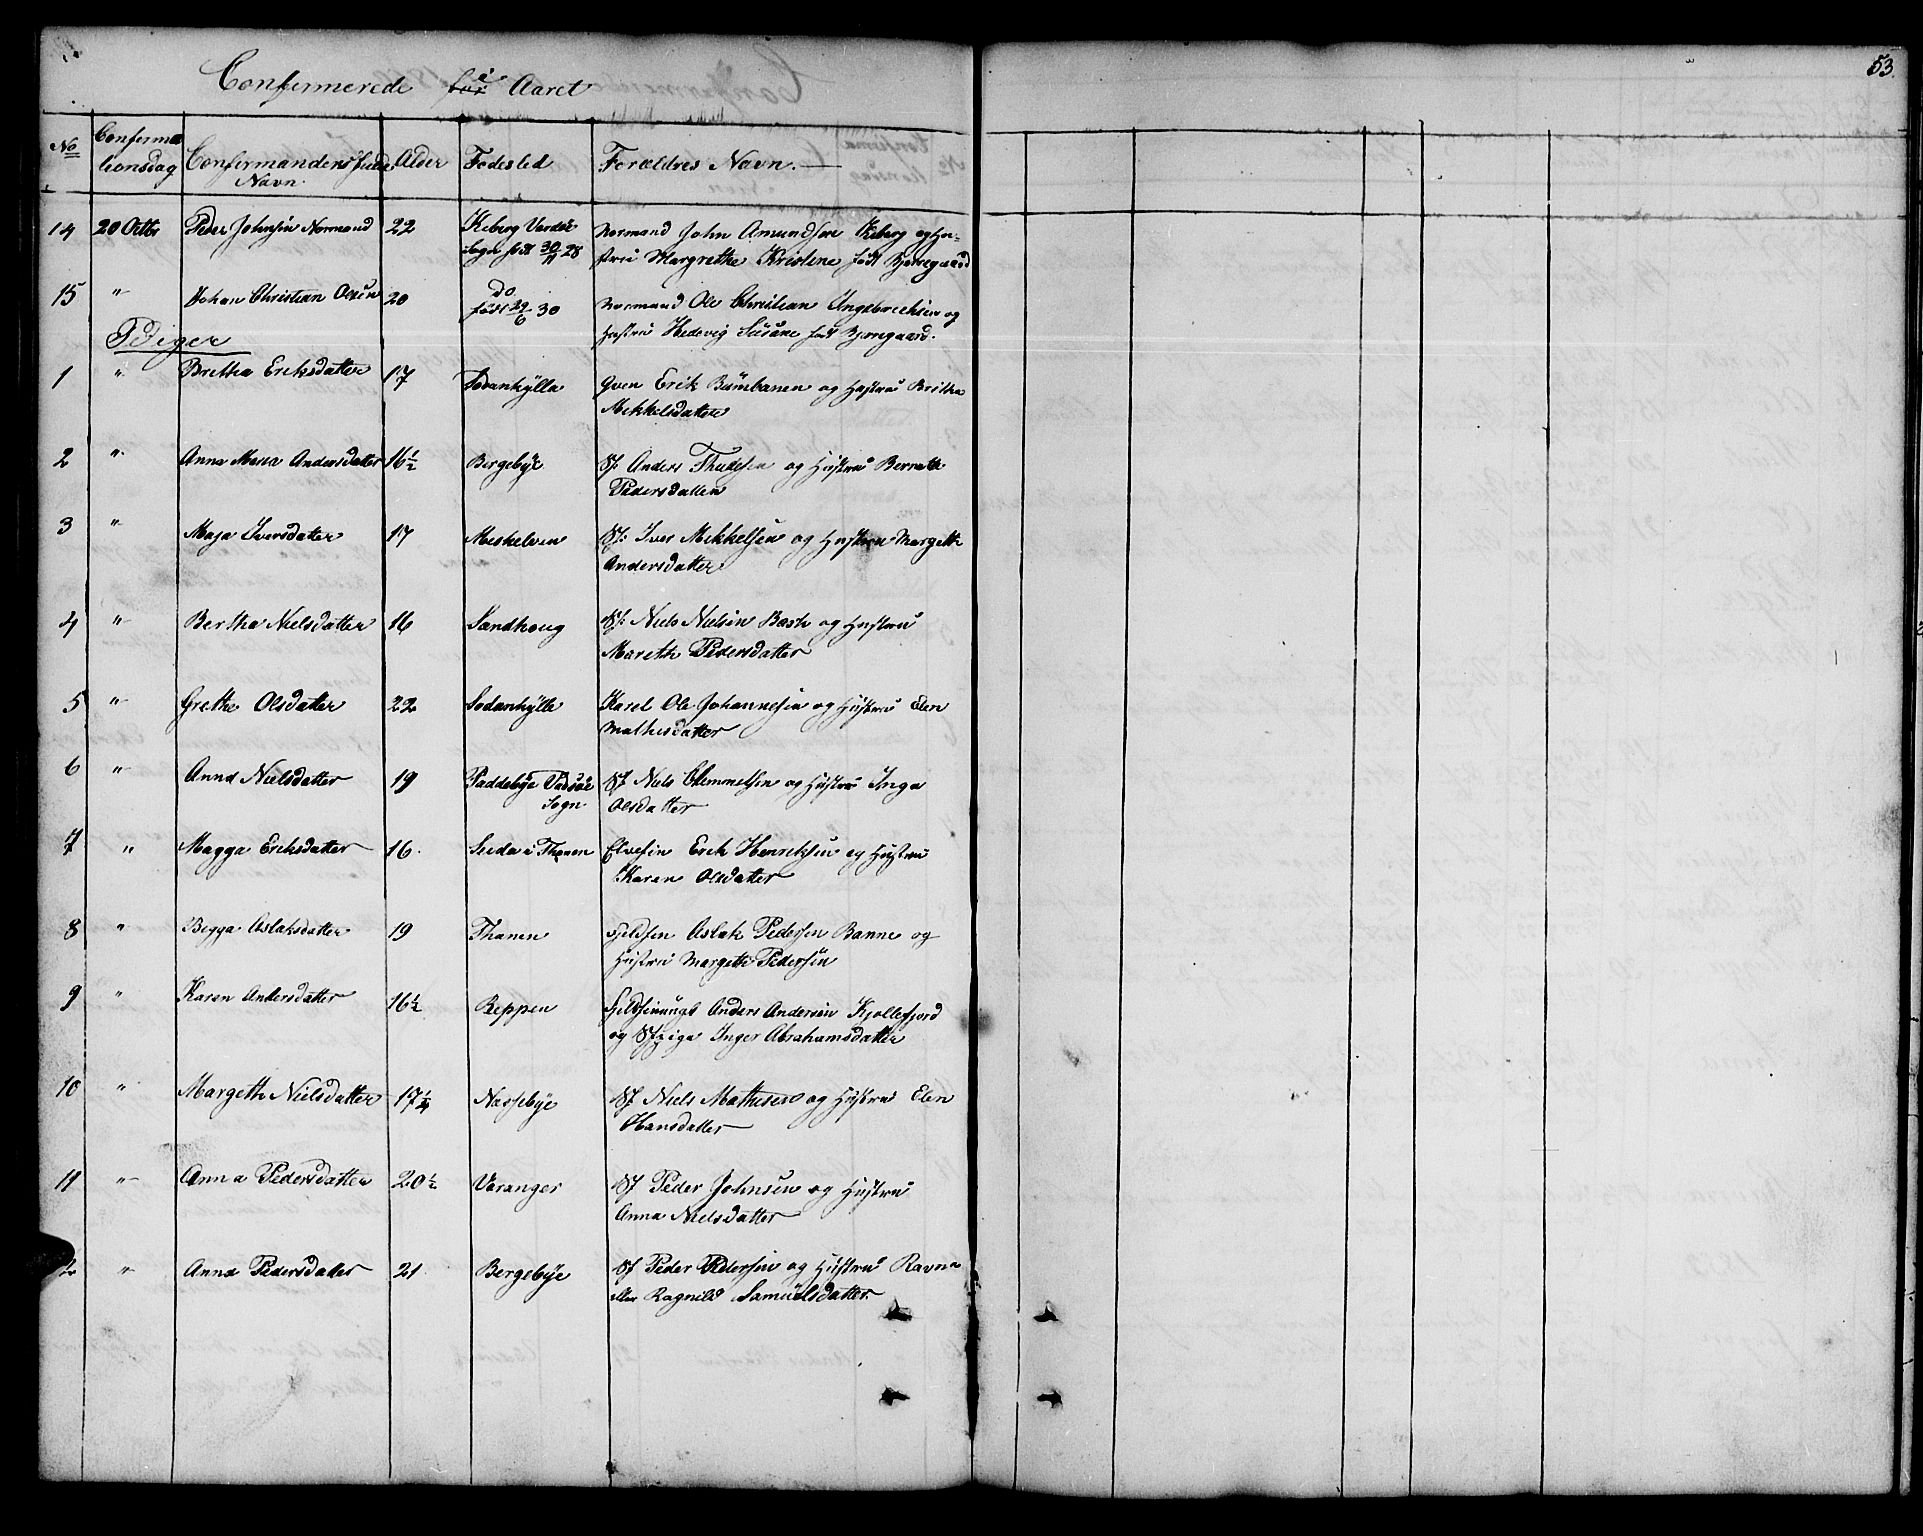 53.
Confermerede for i Aaret
No Conferma Confirmandens fulde Alder Fødested Forældres Navn.
tionsdag Navn.
14 20 Octbr Peder Johnsen Normand 22 Kiberg Vardøe Normand John Amundsen Kiberg og Hu-
Sogn født 30/11 28 strue Margrethe Kristene født Bjerregaard
15 " Johan Christian Olsen 20 do Normand Ole Christian Ingebrechtsen og
født 29/6 30 Hustru Hedevig Susane født Bjerregaard.
Piger
1 " Britha Eriksdatter 17 Sodankylla Qven Erik Bumbanen og Hustru Britha
Mikkelsdatter
2 " Anna Maria Andersdatter 16½ Bergebye Sf. Anders Thudesen og Hustru Bereth
Pedersdatter
3 " Maja Iversdatter 17 Meskelven Sf: Iver Mikkelsen og Hustru Margeth
Andersdatter
4 " Bertha Nielsdatter 16 Sandhoug Sf: Niels Nielsen Basti og Hustru
Mareth Pedersdatter
5 " Grethe Olsdatter 22 Sodankylle Karel Ole Johannesen og Hustru Elen
Mathisdatter
6 " Anna Nielsdatter 19 Paddebye Vadsøe Sf Niels Clemmetsen og Hustru Inga
Sogn Olsdatter
7 " Magga Eriksdatter 16. Seida i Thanen Elvefin Erik Henriksen og Hustru
Karen Olsdatter
8 " Begga Aslaksdatter 19 Thanen Fjeldfin Aslak Pedersen Banne og
Hustru Margeth Pedersen
9 " Karen Andersdatter 16½ Beppen Fjeldfinungk Anders Andersen Kjollefjord
og Sfpige Inger Abrahamsdatter
10 " Margeth Nielsdatter 17¼ Næssebye Sf Niels Mathisen og Hustru Elen
Hansdatter
11 " Anna Pedersdatter 20½ Varanger Sf Peder Johnsen og Hustru
Anna Nielsdatter
2 " Anna Pedersdatter 21 Bergebye Sf Peder Pedersen og Hustru Ravna
eller Ragnild Samuelsdatter.